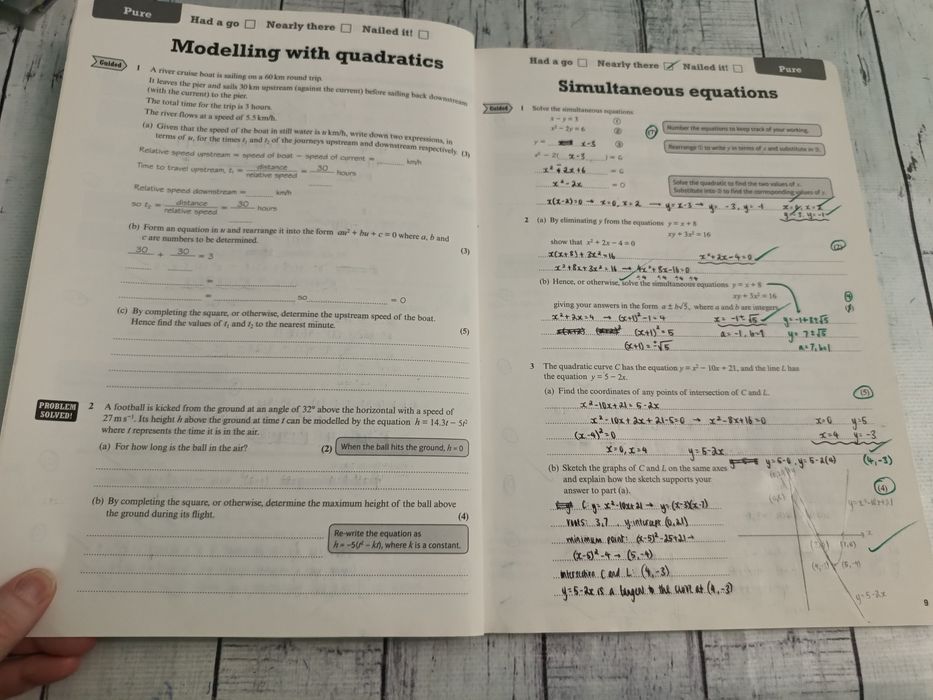 Pure
Had a go □ Nearly there □ Nailed it! □
Modelling with quadratics
Guided
1 A river cruise boat is sailing on a 60 km round trip.
It leaves the pier and sails 30 km upstream (against the current) before sailing back downstream
(with the current) to the pier.
The total time for the trip is 3 hours.
The river flows at a speed of 5.5 km/h.
(a) Given that the speed of the boat in still water is u km/h, write down two expressions, in
terms of u, for the times t₁ and t₂ of the journeys upstream and downstream respectively. (3)
Relative speed upstream = speed of boat − speed of current = ............ km/h
Time to travel upstream, t₁ = distance / relative speed = 30 / ...... hours
Relative speed downstream = ............ km/h
so t₂ = distance / relative speed = 30 / ...... hours
(b) Form an equation in u and rearrange it into the form au² + bu + c = 0 where a, b and
c are numbers to be determined. (3)
30 / ...... + 30 / ...... = 3
............ =
............ = ............ so ............ = 0
(c) By completing the square, or otherwise, determine the upstream speed of the boat.
Hence find the values of t₁ and t₂ to the nearest minute. (5)
PROBLEM SOLVED!
2 A football is kicked from the ground at an angle of 32° above the horizontal with a speed of
27 m s⁻¹. Its height h above the ground at time t can be modelled by the equation h = 14.3t − 5t²
where t represents the time it is in the air.
(a) For how long is the ball in the air? (2)
When the ball hits the ground, h = 0
(b) By completing the square, or otherwise, determine the maximum height of the ball above
the ground during its flight. (4)
Re-write the equation as
h = −5(t² − kt), where k is a constant.
Had a go □ Nearly there ☑ Nailed it! □
Pure
Simultaneous equations
Guided
1 Solve the simultaneous equations
x − y = 3 ①
x² − 2y = 6 ②
(7)
Number the equations to keep track of your working.
y = x-3 ③
Rearrange ① to write y in terms of x and substitute in ②.
x² − 2( x-3 ) = 6
x² - 2x + 6 = 6
x² - 2x = 0
Solve the quadratic to find the two values of x.
Substitute into ③ to find the corresponding values of y.
x(x-2)=0 → x=0, x=2 → y=x-3 → y= -3, y= -1
x=0, x=2
y=-3, y=-1
2 (a) By eliminating y from the equations y = x + 8
xy + 3x² = 16
show that x² + 2x − 4 = 0
(2)
x(x+8) + 3x² = 16
x²+2x-4=0
x²+8x+3x² = 16 → 4x²+8x-16=0
÷4 ÷4 ÷4 ÷4
(b) Hence, or otherwise, solve the simultaneous equations y = x + 8
xy + 3x² = 16
giving your answers in the form a ± b√5, where a and b are integers.
x²+2x=4 → (x+1)²-1=4
x= -1±√5
y=-1+8±√5
(x+1)²=5
a=-1, b=1
y= 7±√5
(x+1)=±√5
a=7, b=1
3 The quadratic curve C has the equation y = x² − 10x + 21, and the line L has
the equation y = 5 − 2x.
(a) Find the coordinates of any points of intersection of C and L.
(5)
x²-10x+21=5-2x
x²-10x+2x+21-5=0 → x²-8x+16=0
x=0 y=5
(x-4)²=0
x=4 y=-3
x=0, x=4
y=5-2x
y=5-0, y=5-2(4)
(4,-3)
(b) Sketch the graphs of C and L on the same axes
and explain how the sketch supports your
answer to part (a).
(4)
C: y= x²-10x+21 → y=(x-3)(x-7)
roots: 3,7 , y-intercept (0,21)
minimum point: (x-5)²-25+21→
(x-5)²-4 → (5,-4)
intersection C and L: (4,-3)
y=5-2x is a tangent to the curve at (4,-3)
y=x²-10x+21
(4,-3)
(5,-4)
y=5-2x
9